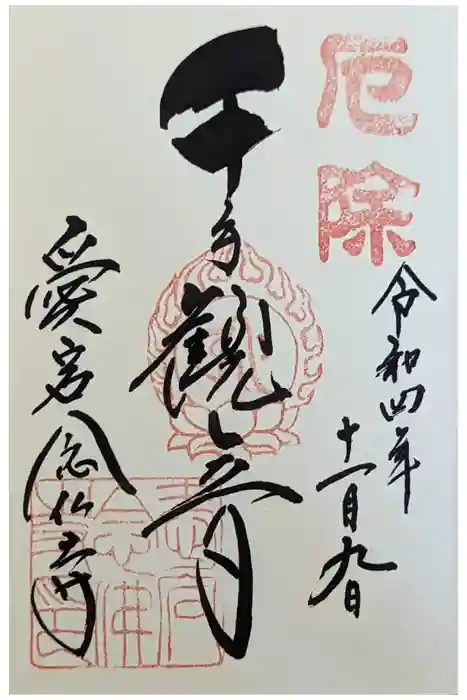 厄除
令和四年
十一月九日
千手観音
愛宕念仏寺